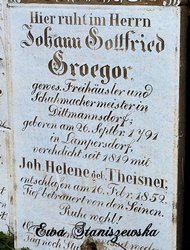 Hier ruht im Herrn
Johann Gottfried
Groegor,
gewes. Freihäusler und
Schuhmachermeister in
Dittmannsdorf;
geboren am 26. Septbr. 1791
in Lampersdorf,
verehelicht seit 1819 mit
Joh. Helene geb. Theisner,
entschlafen am 16. Febr. 1852.
Tief betrauert von den Seinen.
Ruhe wohl!
Ewa Staniszewska
noch